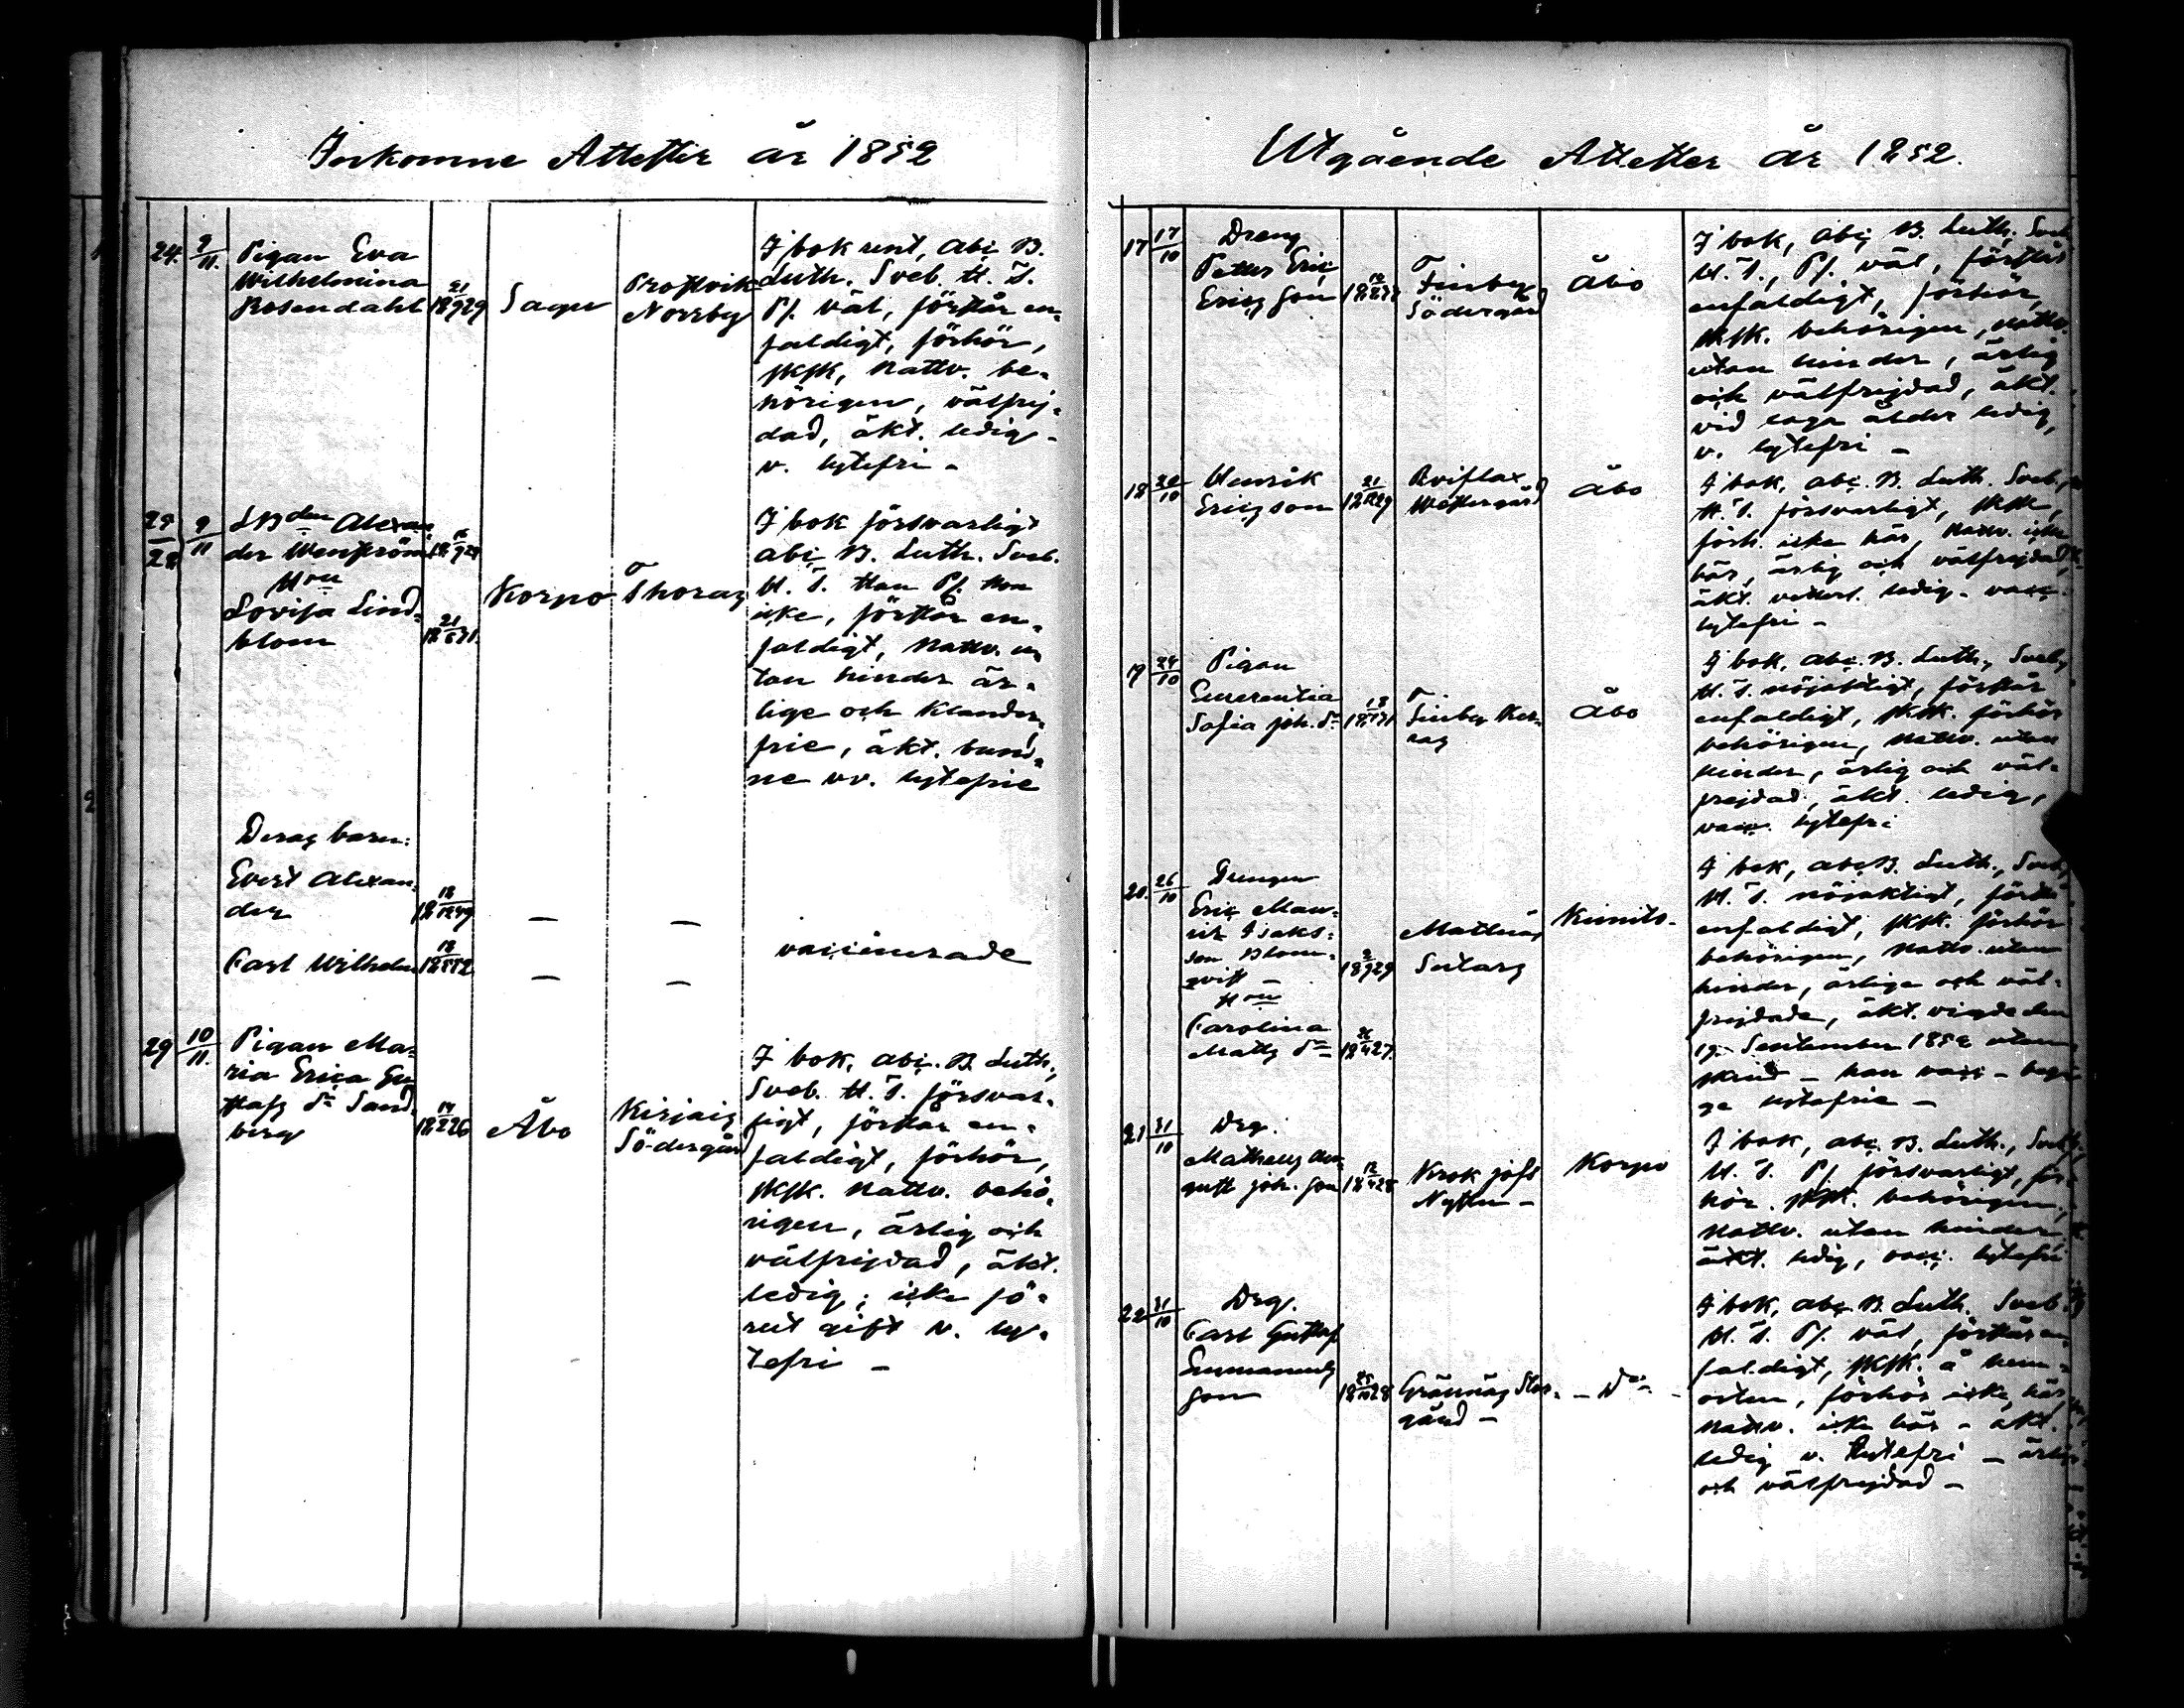 Inkomne Attester år 1852
24. 9/11. Pigan Eva
Wilhelmina
Rosendahl 18 21/9 29 Sagu Prostvik
Norrby
I bok rent, abc B.
Luth. Sveb. H. T.
Ps. väl, förstår en-
faldigt, förhör,
sksk, nattv. be-
hörigen, välfrej-
dad, äkt. ledig -
v. lytefri -
9/11 LBden Alexan
der Wenström
Hou
Lovisa Lind-
blom 18 21/5 31.
Korpo Thoras
I bok försvarligt
abc B. Luth. Sveb.
H. T. Han Ps. hon
icke, förstår en-
faldigt, nattv. u-
tan hinder är-
lige och klander-
frie, äkt. bund-
ne vv. lytefrie
Deras barn:
Evert Alexan-
der 18 18/12 49 — —
Carl Wilhelm 18 18/5 52 — —
vaccinerade
29 10/11. Pigan Ma-
ria Erica Gu
stafs dr Sand-
berg 18 14/2 26 Åbo Kirjais
Södergård
I bok, abc. B. Luth.,
Sveb. H. T. försvar-
ligt, förstår en-
faldigt, förhör,
sksk. nattv. behö-
rigen, ärlig och
välfrejdad, äkt.
ledig; icke fö-
rut gift v. ly-
tefri -
Utgående Attester år 1852.
17 17/10 Dreng
Petter Eric
Ericsson Finby
Södergård Åbo
I bok, abc B. Luth. Sveb
H. T., Ps. väl, förstår
enfaldigt, förhör,
sksk. behörigen, nattv.
utan hinder, ärlig
och välfrejdad, äkt.
vid laga ålder ledig,
v. lytefri -
18 20/10 Henrik
Ericsson Wattergård Åbo
I bok, abc. B. Luth. Sveb.,
H. T. försvarligt, sksk,
förh. icke här, nattv. icke
här, ärlig och välfrejdad,
äkt. ledig. vacc.
lytefri -
19 24/10 Pigan
Emerentia
Sofia Joh. dr Finby Åbo
I bok, abc. B. Luth., Sveb,
H. T. nöjaktigt, förstår
enfaldigt, sksk. förhör
behörigen, nattv. utan
hinder, ärlig och väl-
frejdad, äkt. ledig,
vacc. lytefri
20. 26/10 Drengen
Eric Mau-
ritz Isaks-
son Blom-
qvist
Hou
Carolina
Matts dr 18 9/9 29
Mattnäs
Kimito-
I bok, abc B. Luth., Sveb,
H. T. nöjaktigt, förstår
enfaldigt, sksk. förhör
behörigen, nattv. utan
hinder, ärlige och väl-
frejdade, äkt. vigde den
19 September 1852 utom
skrud - han vacc - begge
lytefrie -
21 31/10 Drg.
Matheus Au-
gust Joh. son
Nystu - Korpo
I bok, abc B. Luth., Sveb,
H. T. Ps. försvarligt, för-
hör. sksk. behörigen,
nattv. utan hinder,
äkt. ledig, vacc. lytefri
22 31/10 Drg.
Carl Gustaf
Emmanuels
son Grännäs Stor-
gård - - Do -
I bok, abc B. Luth. Sveb.
H. T. Ps. väl, förstår en-
faldigt, sksk. å hem-
orten, förhör icke här,
nattv. icke här - äkt.
ledig v. lytefri - ärlig
och välfrejdad -